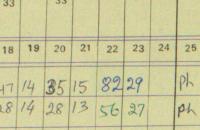 33 33
18 19 20 21 22 23 24 25
47 14 35 15 82 29 Ph
28 14 28 13 56 27 Ph